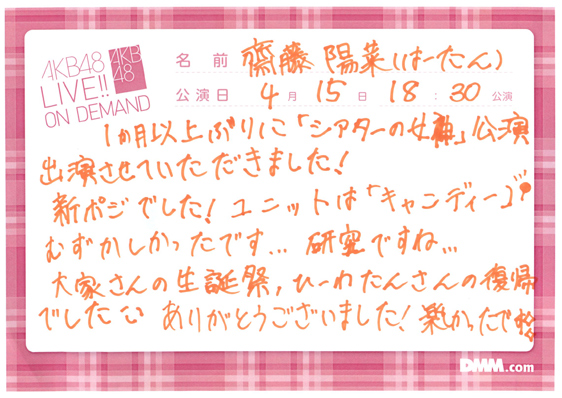 AKB48
LIVE!!
ON DEMAND
AKB
48
名前 齋藤陽菜(はーたん)
公演日 4月15日 18:30公演
1ヶ月以上ぶりに「シアターの女神」公演
出演させていただきました!
新ポジでした! ユニットは「キャンディー」
むずかしかったです… 研究ですね…
大家さんの生誕祭, ひーわたんさんの復帰
でした ありがとうございました! 楽かったです
DMM.com